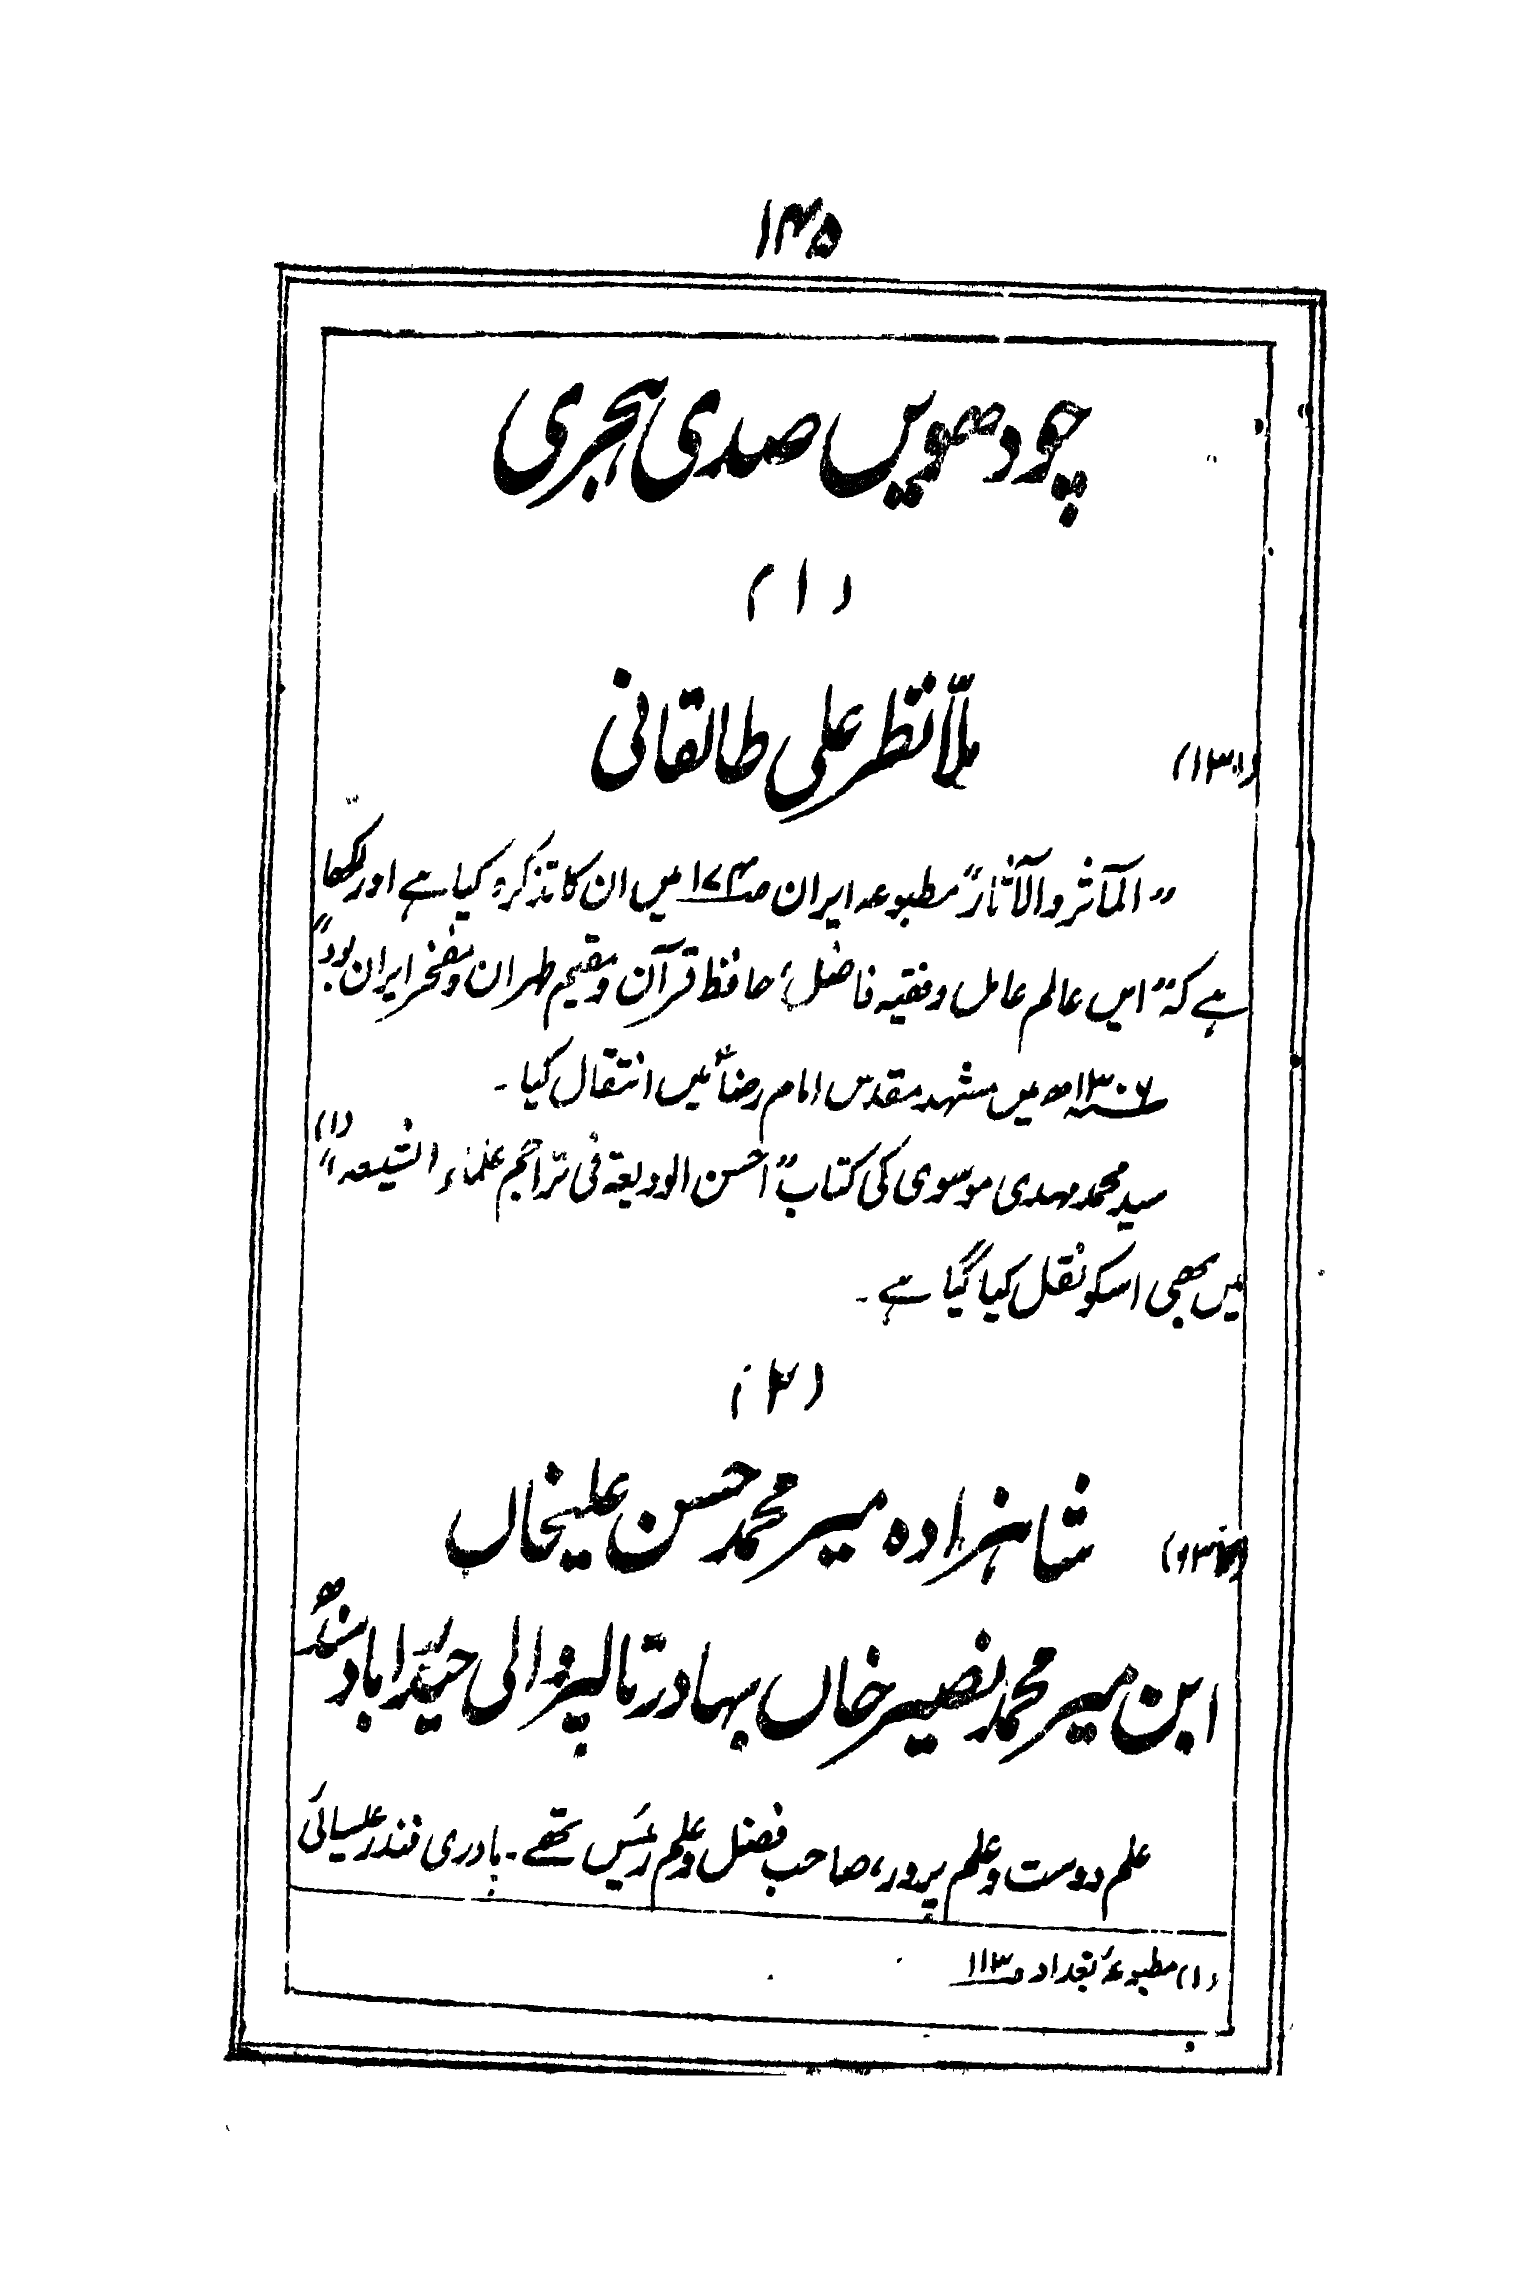 ۱۴۵
چودھویں صدی ہجری
(۱)
(۱۳۰۱)
ملّا نظر علی طالقانی
”المآثر والآثار“ مطبوعہ ایران ص۱۷۴ میں ان کا تذکرہ کیا ہے اور لکھا
ہے کہ ”ایں عالم عامل و فقیہ فاضل، حافظ قرآن و مقیم طہران و مفخر ایران بود“
۱۳۰۶ھ میں مشہد مقدس امام رضاؑ میں انتقال کیا۔
سید محمد مہدی موسوی کی کتاب ”احسن الودیعۃ فی تراجم علماء الشیعہ“ (۱)
میں بھی اسکو نقل کیا گیا ہے۔
(۲)
شاہزادہ میر محمد حسن علیخاں
ابن میر محمد نصیر خاں بہادر تالپر والی حیدرآباد سندھ
علم دوست و علم پرور، صاحب فضل و علم رئیس تھے۔ پادری فنڈر عیسائی
(۱) مطبوعۂ بغداد ص۱۱۳